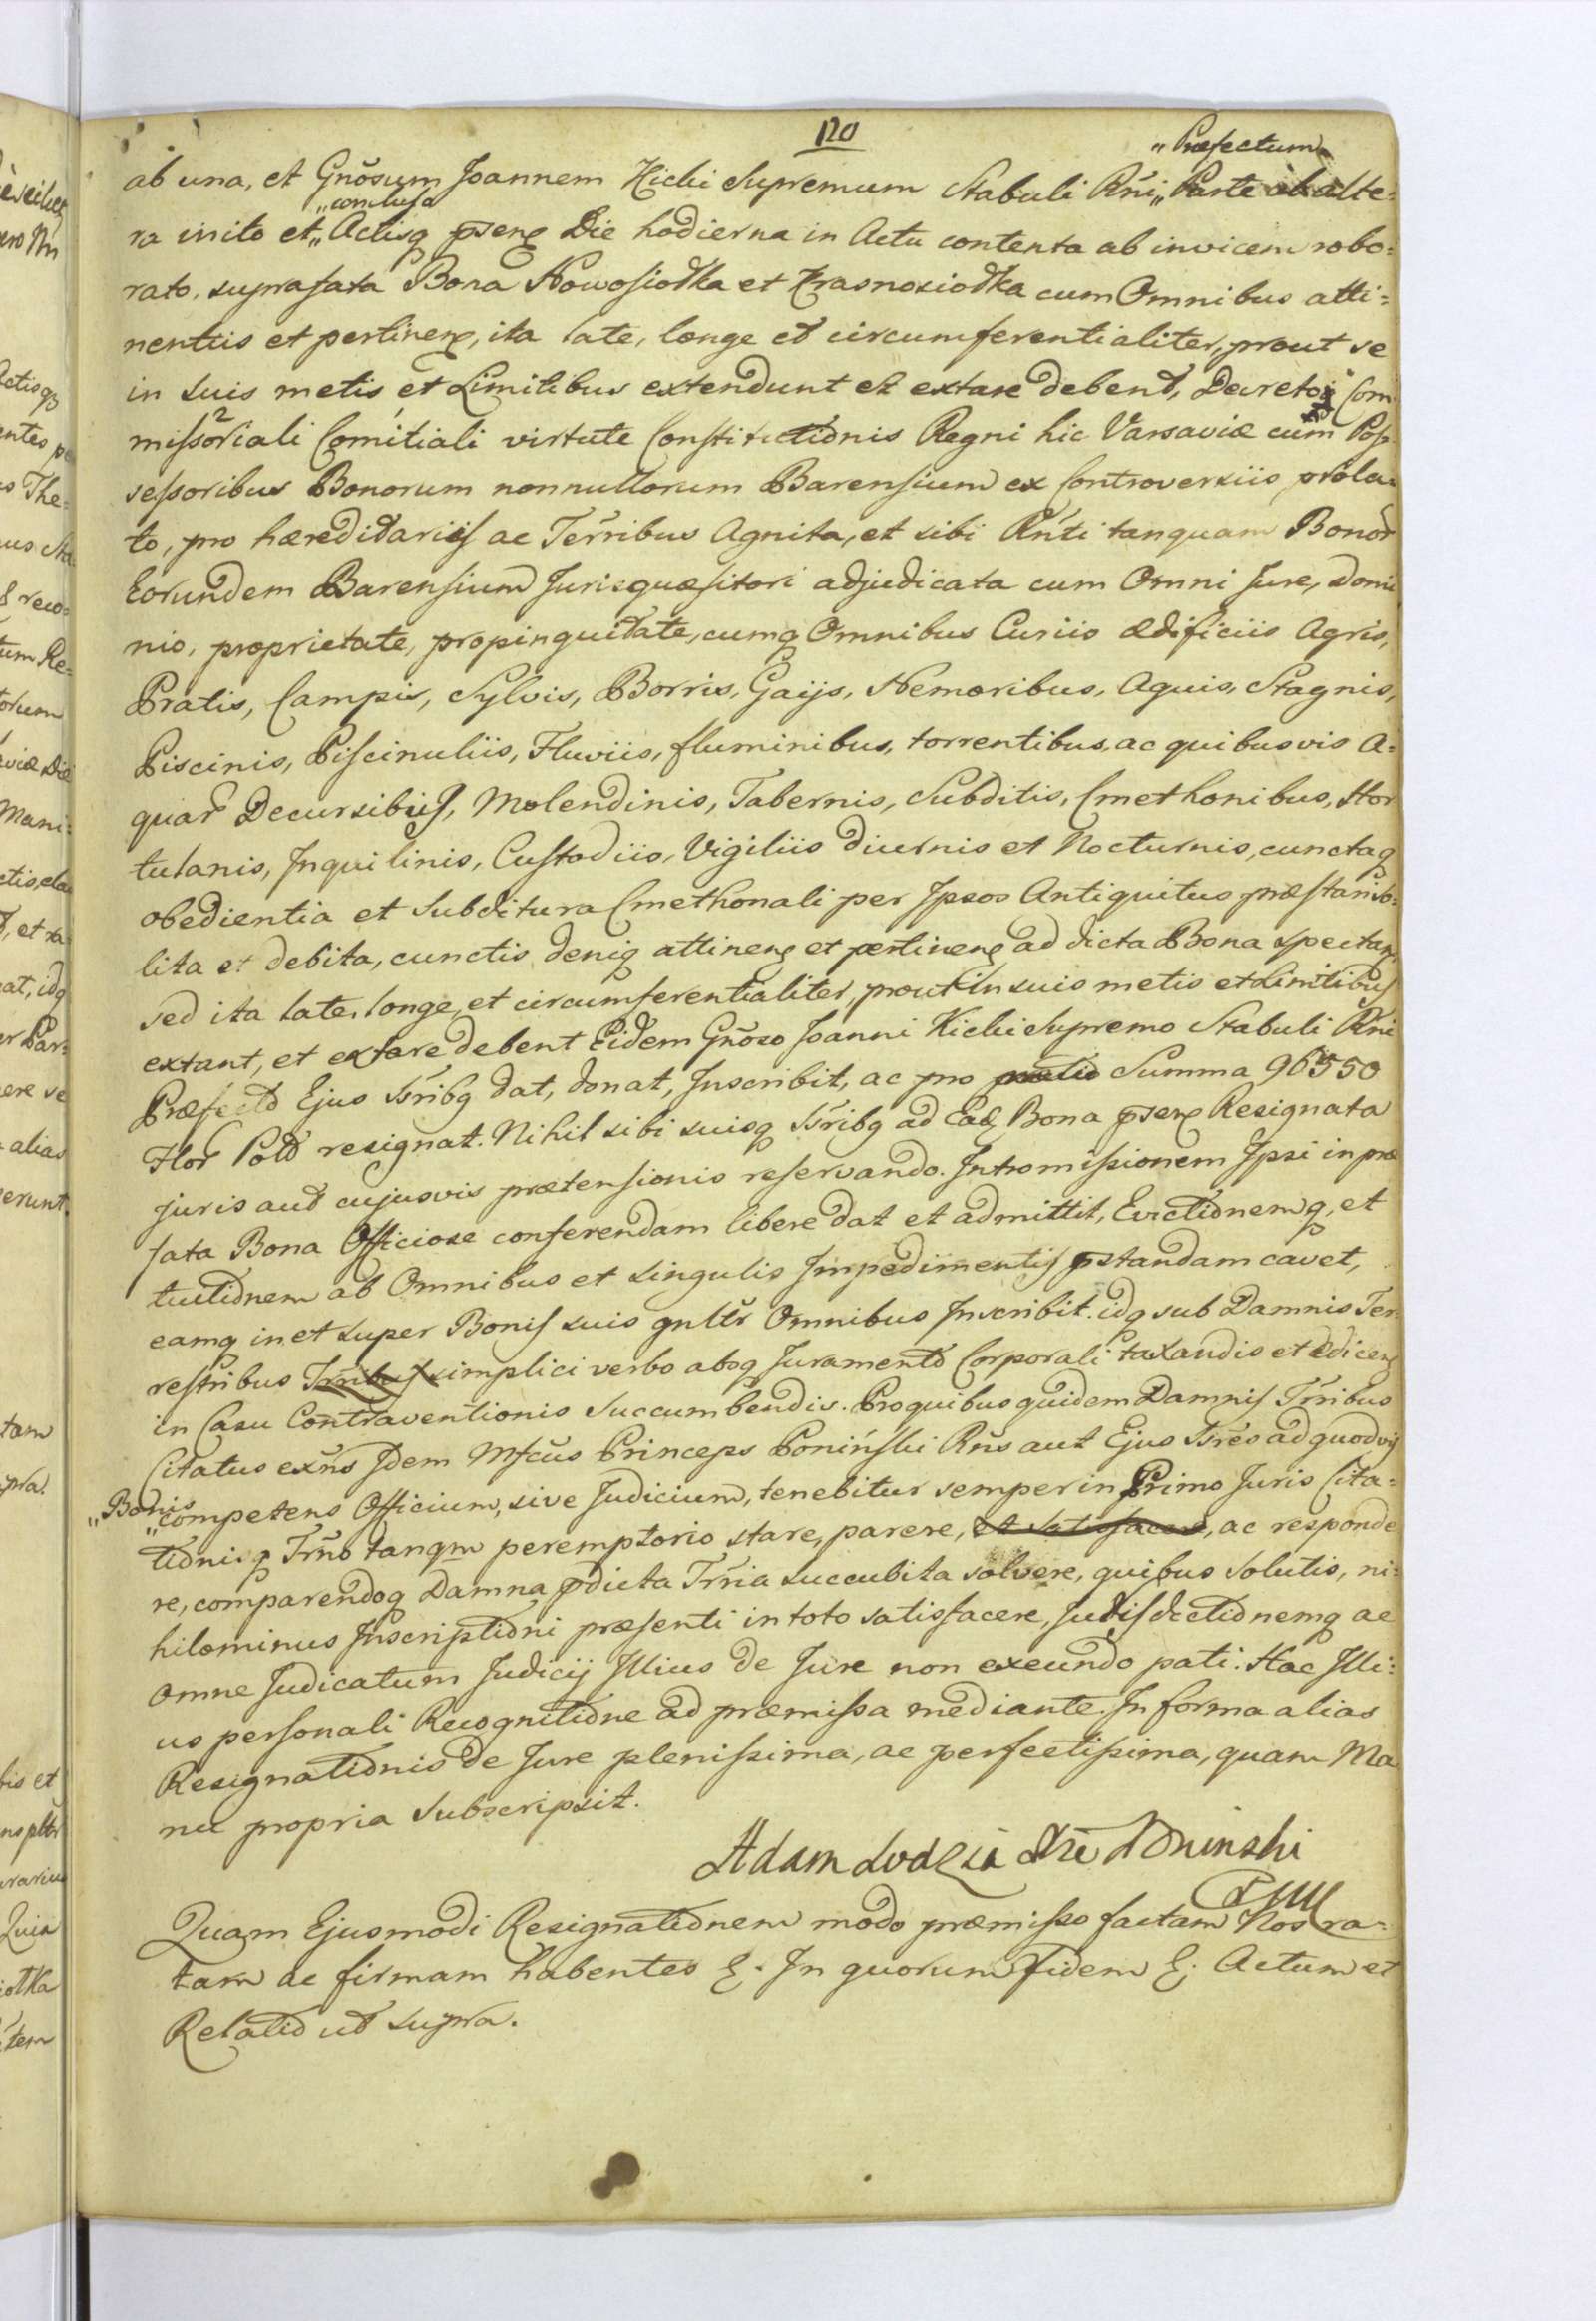 120
„Præfectum
ab una, et Gnõsum Joannem Kicki Supremum Stabuli Rñi„ Parte ab alte=
„conclusa
ra inito et„ Actisq pseng Die hodierna in Actu contenta ab invicem robo=
rato, suprafata Bona Nowosiołka et Krasnosiołka cum Omnibus atti=
nentiis et pertineng, ita late, longe et circumferentialiter, prout se
in suis metis et Limitibus extendunt et extare debent, Decreto Com
missoriali Comitiali virtute Constitutionis Regni hic Varsaviæ cum Pos=
sessoribus Bonorum nonnullorum Barensium ex Controversiis prola=
to, pro hæreditariis ac Terribus Agnita, et sibi Rñti tanquam Bonor
Eorundem Barensium Jurisquæsitori adjudicata cum Omni Jure, Domi
nio, proprietate, propinquitate, cumq Omnibus Curiis ædificiis Agris,
Pratis, Campis, Sylvis, Borris, Gaijs, Nemoribus, Aquis, Stagnis,
Piscinis, Piscinuliis, Fluviis, fluminibus, torrentibus, ac quibusvis A=
quar Decursibus, Molendinis, Tabernis, Subditis, Cmethonibus, Hor
tulanis, Inquilinis, Custodiis, Vigiliis diurnis et Nocturnis, cunctaq
obedientia et Subditura Cmethonali per Ipsos Antiquitus præstari so=
lita et debita, cunctis deniq attineng et pertineng ad dicta Bona spectan,
sed ita late, longe, et circumferentialiter, prout in suis metis et Limitibus
extant, et extare debent Eidem Gnõso Joanni Kicki Supremo Stabuli Rñi
Præfecto Ejus Ssribq dat, donat, Inscribit, ac pro Summa 96550
Flor Pol resignat. Nihil sibi suisq Ssribq ad Eadg Bona pseng Resignata
juris aut cujusvis prætensionis reservando. Intromissionem Ipsi in præ
fata Bona Officiose conferendam libere dat et admittit, Evictionemq, et
tuitionem ab Omnibus et singulis Impedimentis pstandam cavet,
eamq in et super Bonis suis gnltr Omnibus Inscribit. idq sub Damnis Ter
restribus simplici verbo absq Juramento Corporali taxandis et ediceng
in Casu Contraventionis Succumbendis. Pro quibus quidem Damnis Trribus
Citatus exñs Idem Mfcus Princeps Poniński Rñs aut Ejus Ssres ad quodvis
„Bonis
„competens Officium, sive Judicium, tenebitur semper in Primo Juris Cita=
tionis q Trño tanqm peremptorio stare, parere, et satisfacere, ac responde
re, comparendoq Damna pdicta Trria succubita solvere, quibus solutis, ni=
hilominus Inscriptioni præsenti in toto satisfacere, Jurisdictionemq ac
Omne Judicatum Judicij Illius de Jure non exeundo pati. Hac Illi=
us personali Recognitione ad præmissa mediante. In forma alias
Resignationis de Jure plenissima, ac perfectissima, quam Ma
nu propria Subscripsit.
Adam Lodzia Xże Poninski
Quam Ejusmodi Resignationem modo præmisso factam Nos ra=
tam ac firmam habentes &. In quorum Fidem &. Actum et
Relatio ut supra.